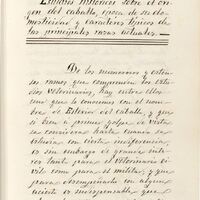 Estudio histórico sobre el ori-
gen del caballo, época de su do-
mesticidad y caracteres típicos de
las principales razas actuales.
De los numerosos y exten-
sos ramos que comprenden los estu-
dios veterinarios, hay entre ellos
uno que le conocemos con el nom-
bre de Exterior del caballo, y que
si bien á primer golpe de vista
se considera hasta cuando se
estudia, con cierta indiferencia
es sin embargo de grande interes
tanto para el veterinario ci-
vil como para el militar, y que
para desempeñarla con algun
acierto es indispensable que